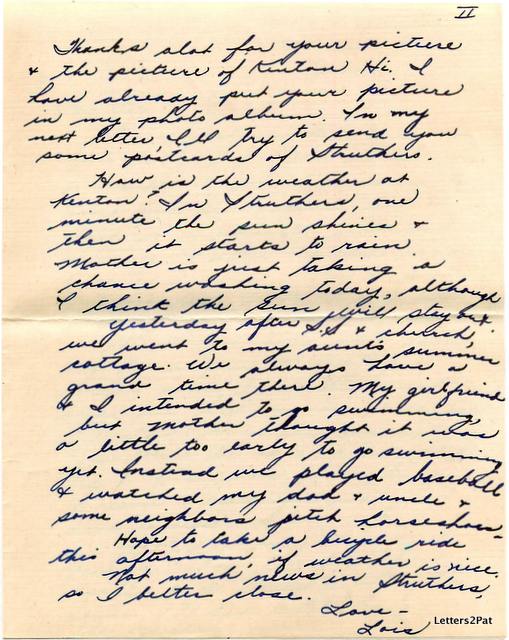 II
Thanks alot for your picture
& the picture of Kenton Hi. I
have already put your picture
in my photo album. In my
next letter I'll try to send you
some postcards of Struthers.
How is the weather at
Kenton? In Struthers, one
minute the sun shines &
then it starts to rain.
Mother is just taking a
chance washing today, although
I think the sun will stay out.
Yesterday after S.S. & church,
we went to my aunt's summer
cottage. We always have a
grand time there. My girlfriend
& I intended to go swimming,
but mother thought it was
a little too early to go swimming
yet. Instead we played baseball
& watched my dad & uncle &
some neighbors pitch horseshoes.
Hope to take a bicycle ride
this afternoon, if weather is nice.
Not much news in Struthers,
so I better close.
Love -
Lois
Letters2Pat